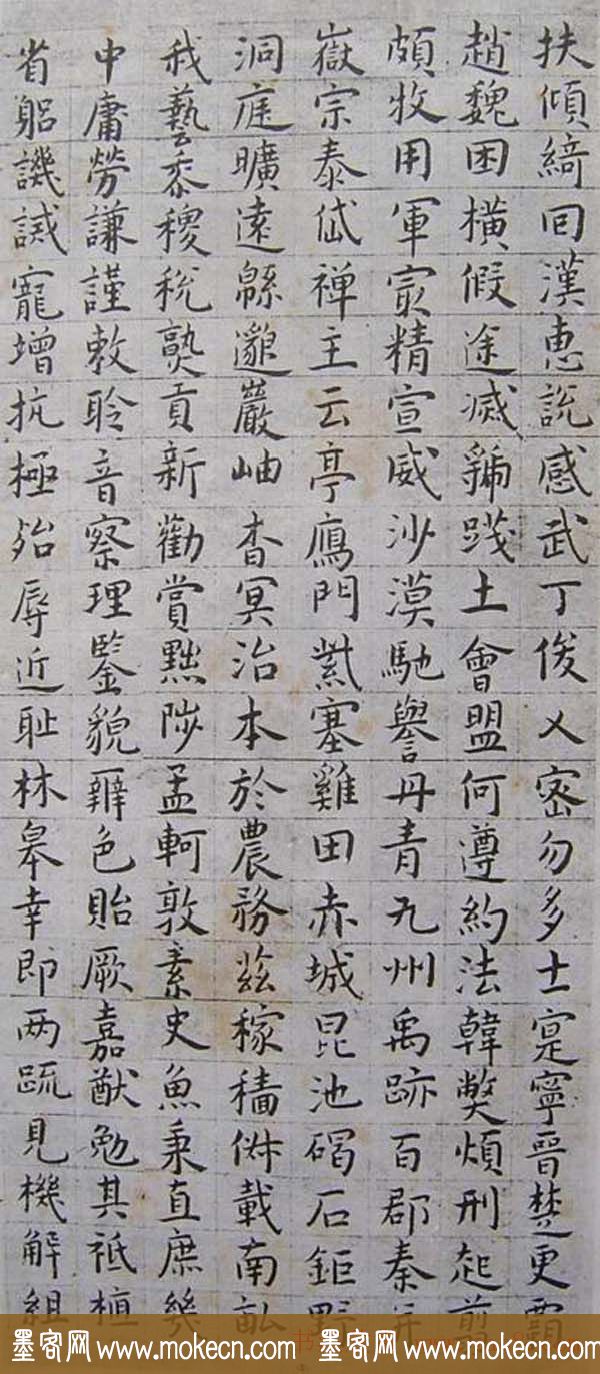 扶傾綺回漢惠說感武丁俊乂密勿多士寔寧晉楚更霸
趙魏困橫假途滅虢踐土會盟何遵約法韓弊煩刑起翦
頗牧用軍㝡精宣威沙漠馳譽丹青九州禹跡百郡秦并
嶽宗泰岱禪主云亭鴈門紫塞雞田赤城昆池碣石鉅野
洞庭曠遠緜邈巖岫杳冥治本於農務茲稼穡俶載南畝
我藝黍稷稅熟貢新勸賞黜陟孟軻敦素史魚秉直庶幾
中庸勞謙謹敕聆音察理鑒貌辨色貽厥嘉猷勉其祗植
省躬譏誡寵增抗極殆辱近耻林皋幸即两疏見機解組
墨客网 www.mokecn.com 墨客网 www.mokecn.com